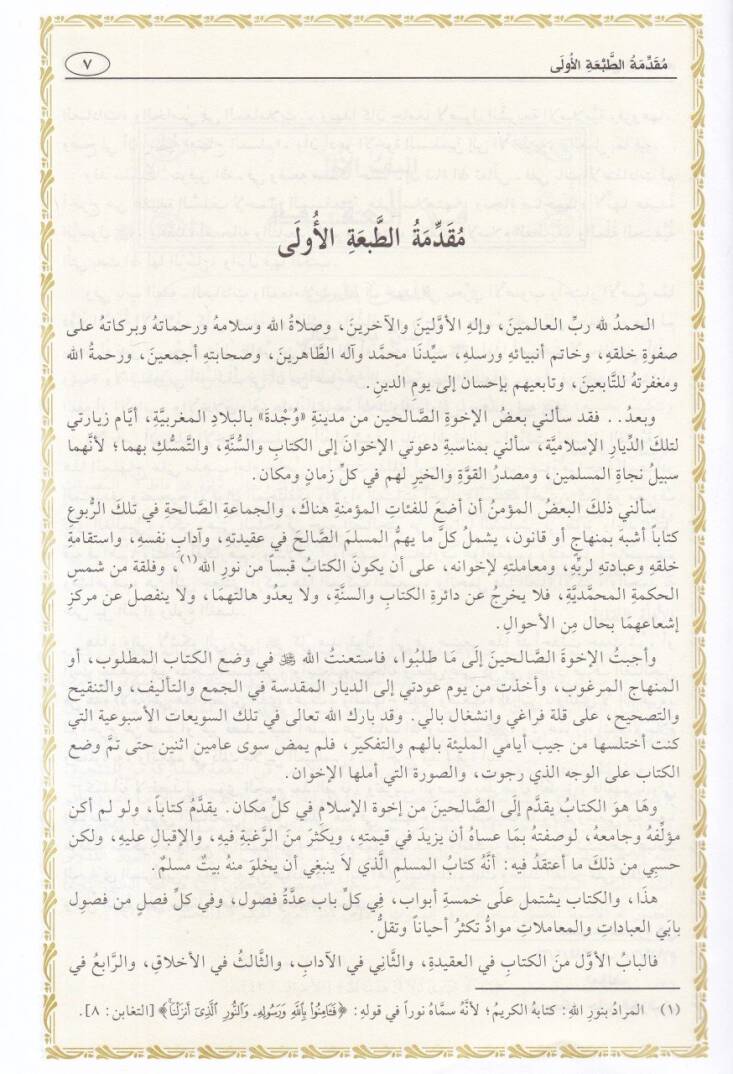 مُقَدِّمَةُ الطَّبْعَةِ الأُولَى
٧
مُقَدِّمَةُ الطَّبعَةِ الأُولَى
الحمدُ لله ربِّ العالمينَ، وإلهِ الأوَّلينَ والآخرينَ، وصلاةُ الله وسلامهُ ورحماتهُ وبركاتهُ على
صفوةِ خلقهِ، وخاتم أنبيائهِ ورسلهِ، سيِّدنَا محمَّد وآله الطَّاهرينَ، وصحابتهِ أجمعينَ، ورحمةُ الله
ومغفرتهُ للتَّابعينَ، وتابعيهم بإحسان إلى يومِ الدينِ.
وبعدُ.. فقد سألني بعضُ الإخوةِ الصَّالحين من مدينةِ «وُجْدةَ» بالبلادِ المغربيَّةِ، أيَّام زيارتي
لتلكَ الدِّيارِ الإسلاميَّة، سألني بمناسبةِ دعوتي الإخوانَ إلى الكتابِ والسُّنَّةِ، والتَّمسُّكِ بهما؛ لأنَّهما
سبيلُ نجاةِ المسلمين، ومصدرُ القوَّةِ والخيرِ لهم في كلِّ زمانٍ ومكان.
سألني ذلكَ البعضُ المؤمنُ أن أضعَ للفئاتِ المؤمنةِ هناكَ، والجماعةِ الصَّالحةِ في تلكَ الرُّبوعِ
كتاباً أشبهَ بمنهاجٍ أو قانون، يشملُ كلَّ ما يهمُّ المسلمَ الصَّالحَ في عقيدتهِ، وآدابِ نفسهِ، واستقامةِ
خلقهِ وعبادتهِ لربِّهِ، ومعاملتهِ لإخوانه، على أن يكونَ الكتابُ قبساً من نورِ الله(١)، وفلقة من شمسِ
الحكمةِ المحمَّديَّةِ، فلا يخرجُ عن دائرةِ الكتابِ والسنَّةِ، ولا يعدُو هالتهمَا، ولا ينفصلُ عن مركزِ
إشعاعهمَا بحال مِن الأحوالِ.
وأجبتُ الإخوةَ الصَّالحينَ إلَى مَا طلبُوا، فاستعنتُ الله ﷻ في وضع الكتاب المطلوب، أو
المنهاج المرغوب، وأخذت من يوم عودتي إلى الديار المقدسة في الجمع والتأليف، والتنقيح
والتصحيح، على قلة فراغي وانشغال بالي. وقد بارك الله تعالى في تلك السويعات الأسبوعية التي
كنت أختلسها من جيب أيامي المليئة بالهم والتفكير، فلم يمض سوى عامين اثنين حتى تمَّ وضع
الكتاب على الوجه الذي رجوت، والصورة التي أملها الإخوان.
وهَا هوَ الكتابُ يقدَّم إلَى الصَّالحينَ من إخوة الإسلام في كلِّ مكان. يقدَّمُ كتاباً، ولو لم أكن
مؤلِّفهُ وجامعهُ، لوصفتهُ بمَا عساهُ أن يزيدَ في قيمتهِ، ويكثرَ منَ الرَّغبةِ فيهِ، والإقبالِ عليهِ، ولكن
حسبِي من ذلكَ ما أعتقدُ فيه: أنَّهُ كتابُ المسلمِ الَّذي لاَ ينبغِي أن يخلوَ منهُ بيتُ مسلمٌ.
هذَا، والكتاب يشتمل علَى خمسةِ أبواب، فِي كلِّ باب عدَّةُ فصول، وفي كلِّ فصل من فصولِ
بابَي العباداتِ والمعاملاتِ موادُّ تكثرُ أحياناً وتقلُّ.
فالبابُ الأوَّل منَ الكتابِ في العقيدةِ، والثَّانِي في الآدابِ، والثَّالثُ في الأخلاقِ، والرَّابعُ في
(١) المرادُ بنورِ اللهِ: كتابهُ الكريمُ؛ لأنَّهُ سمَّاهُ نوراً في قولهِ: ﴿فَـَٔامِنُوا۟ بِٱللَّهِ وَرَسُولِهِۦ وَٱلنُّورِ ٱلَّذِىٓ أَنزَلْنَا﴾ [التغابن: ٨].